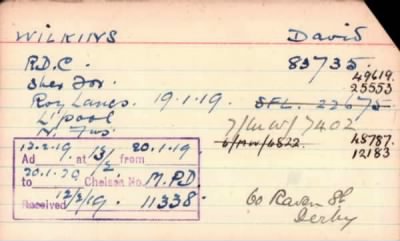 WILKINS David
R.D.C. 83735.
Sher For. 49619.
25553
Roy Lancs. 19.1.19. SFL. 22675
L'pool 7/MW/7402
N. Fus 6/MW/6822 48787.
12183
12.2.19. 13/ 20.1.19
Ad at /2 from
20.1.20
to Chelsea No. M.P.D.
Received 12/2/19. 11338.
60 Raven St
Derby